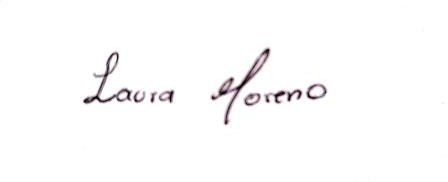 Laura Moreno